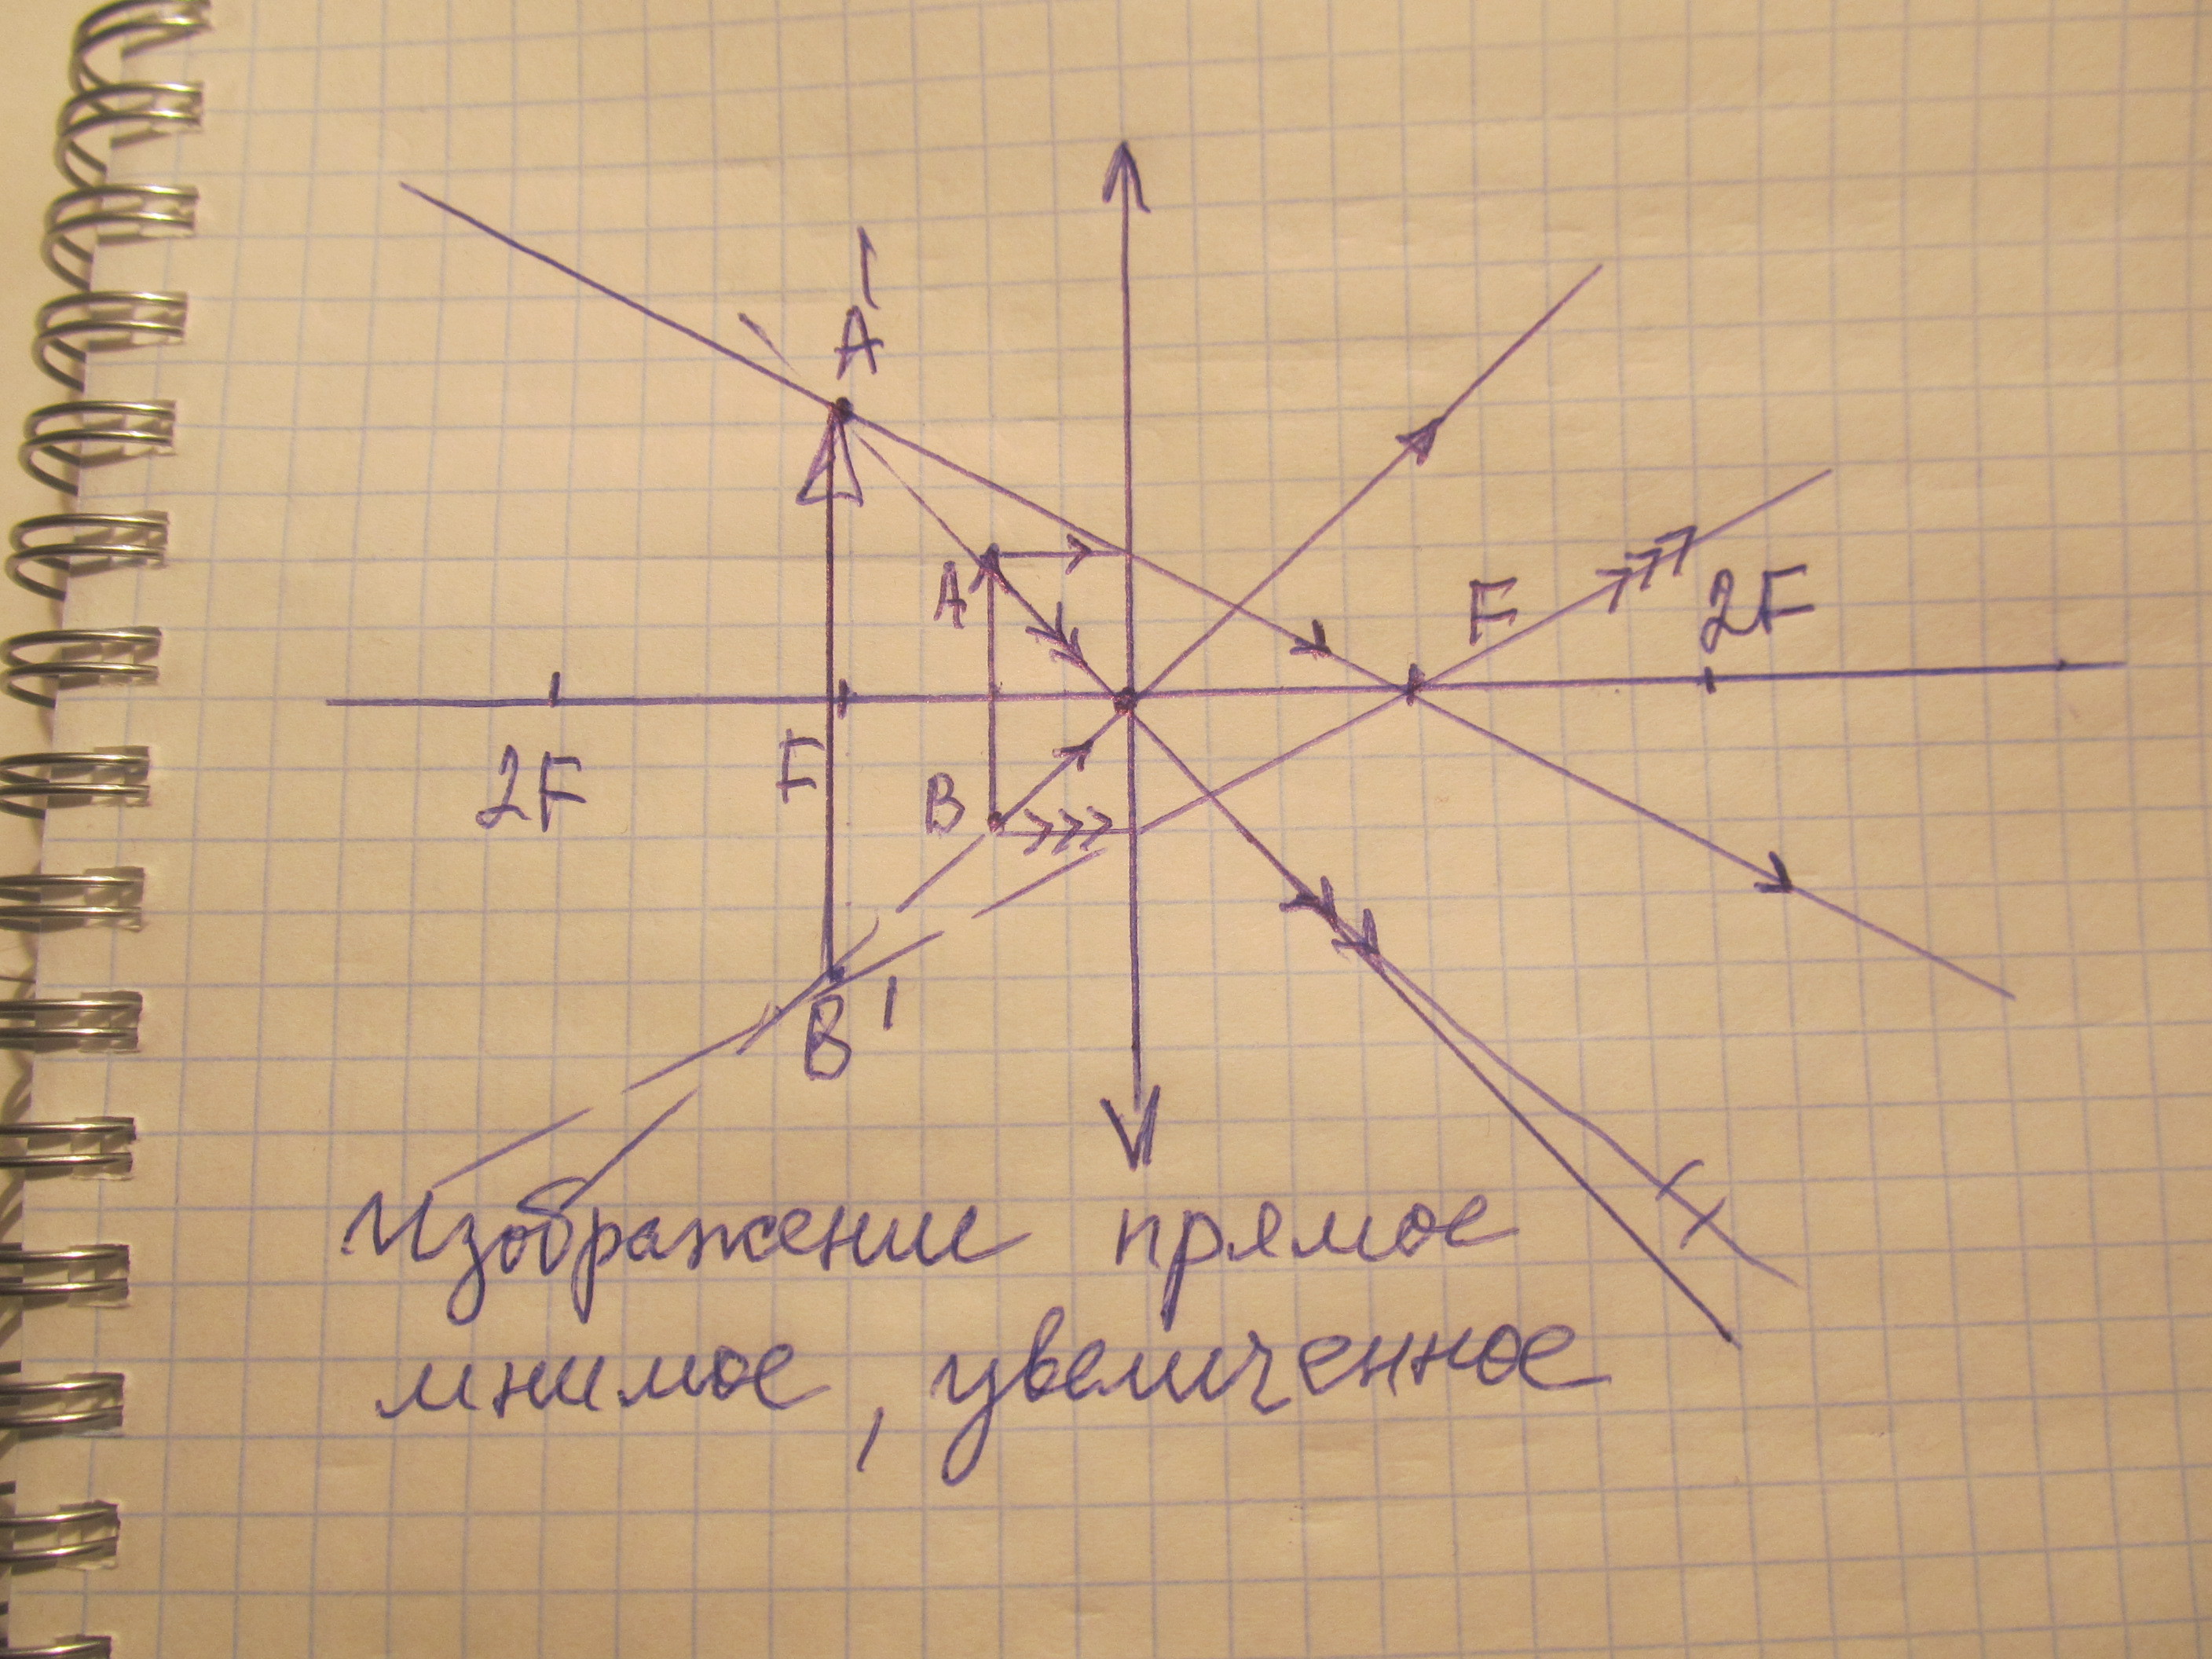 A'
A
F
2F
2F
F
B
B'
Изображение прямое
мнимое, увеличенное